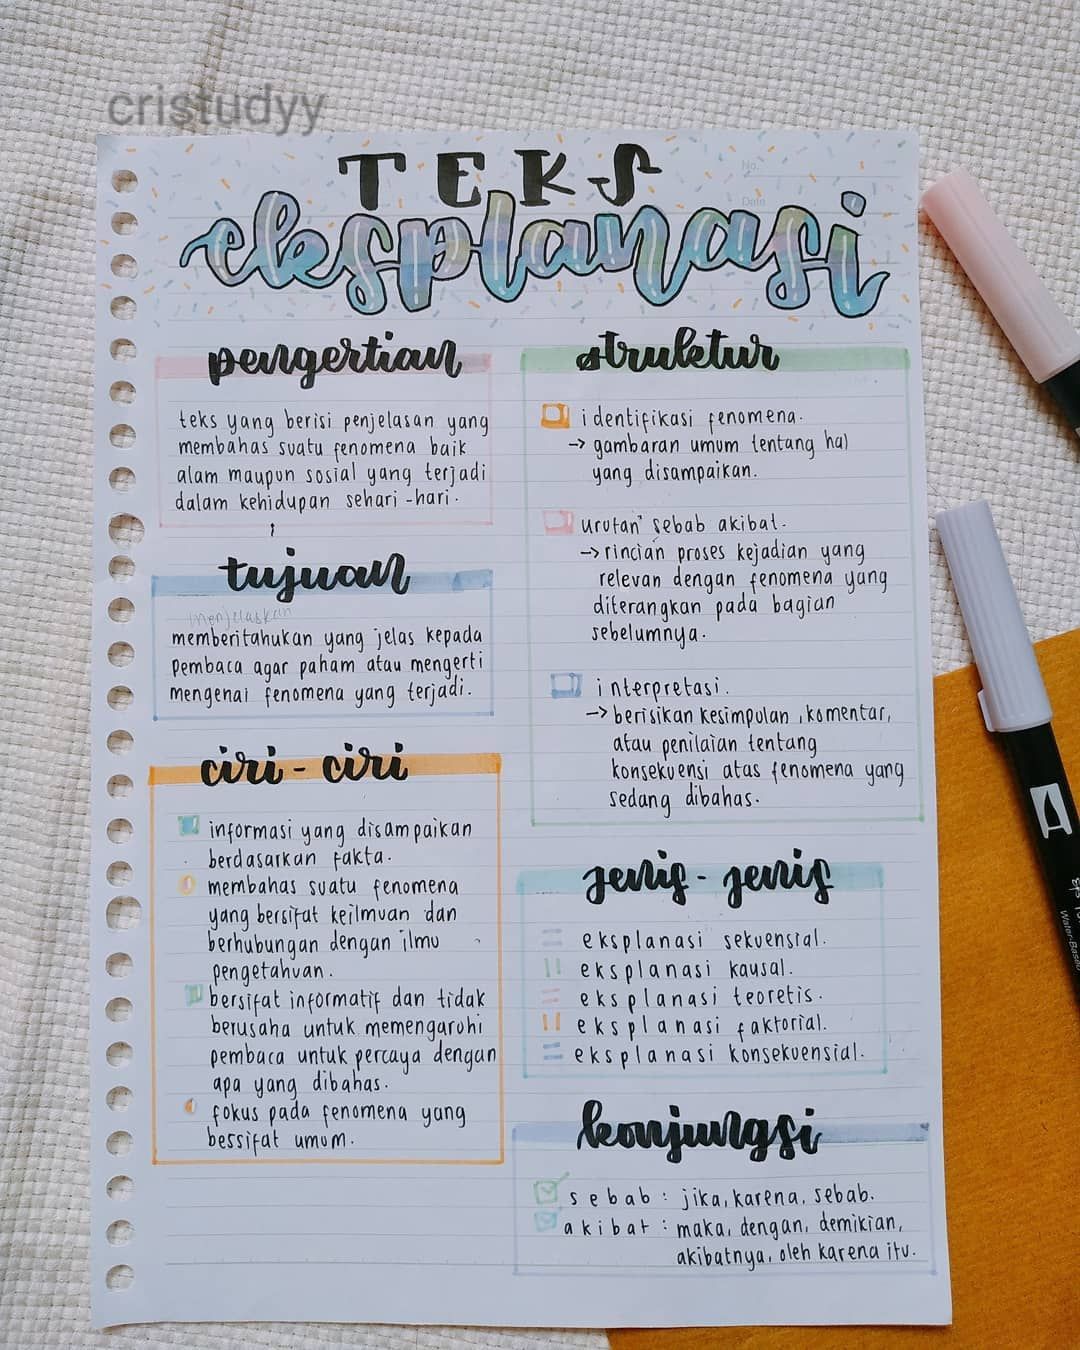 cristudyy
No.
Date
TEKS
eksplanasi
pengertian
teks yang berisi penjelasan yang
membahas suatu fenomena baik
alam maupun sosial yang terjadi
dalam kehidupan sehari-hari.
tujuan
menjelaskan
memberitahukan yang jelas kepada
pembaca agar paham atau mengerti
mengenai fenomena yang terjadi.
ciri-ciri
informasi yang disampaikan
berdasarkan fakta.
membahas suatu fenomena
yang bersifat keilmuan dan
berhubungan dengan ilmu
pengetahuan.
bersifat informatif dan tidak
berusaha untuk memengaruhi
pembaca untuk percaya dengan
apa yang dibahas.
fokus pada fenomena yang
bessifat umum.
struktur
identifikasi fenomena.
→ gambaran umum tentang hal
yang disampaikan.
urutan" sebab akibat.
→ rincian proses kejadian yang
relevan dengan fenomena yang
diterangkan pada bagian
sebelumnya.
interpretasi.
→ berisikan kesimpulan, komentar,
atau penilaian tentang
konsekuensi atas fenomena yang
sedang dibahas.
jenis-jenis
eksplanasi sekuensial.
eksplanasi kausal.
eksplanasi teoretis.
eksplanasi faktorial.
eksplanasi konsekuensial.
konjungsi
sebab : jika, karena, sebab.
akibat : maka, dengan, demikian,
akibatnya, oleh karena itu.
Water-Based